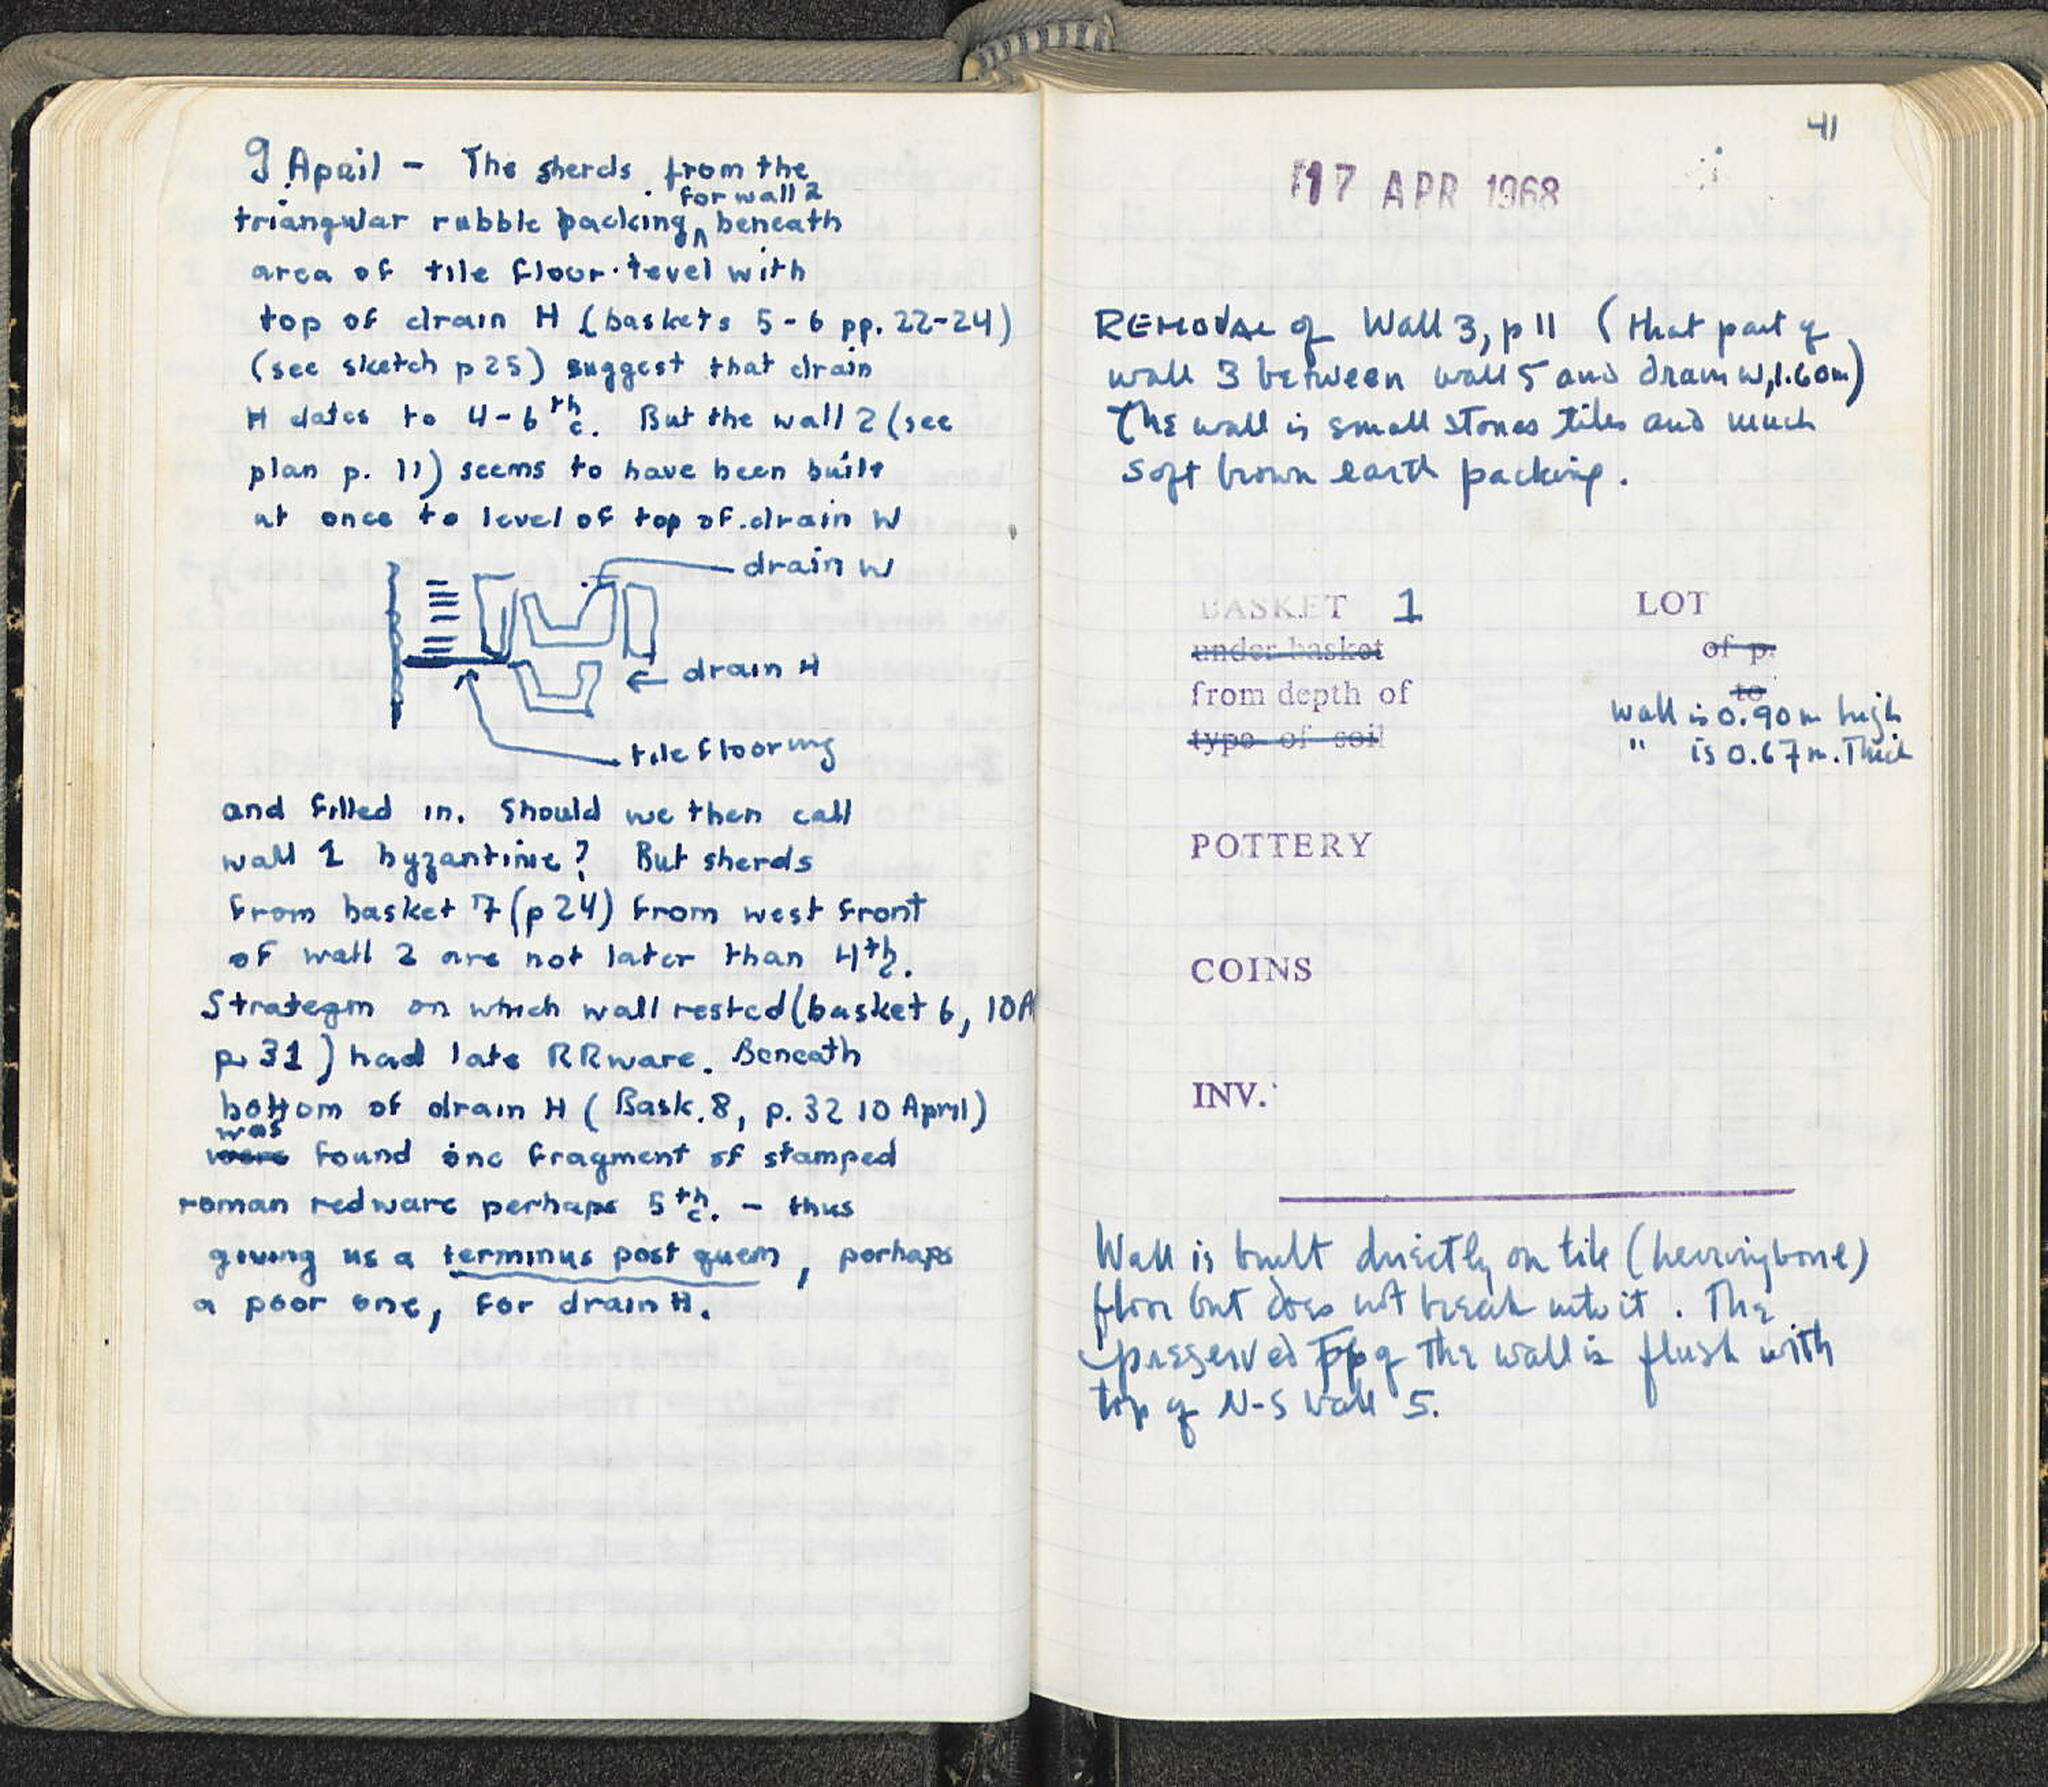 9 April - The sherds from the
for wall 2
triangular rubble packing beneath
area of tile floor level with
top of drain H (baskets 5-6 pp. 22-24)
(see sketch p 25) suggest that drain
H dates to 4-6th c. But the wall 2 (see
plan p. 11) seems to have been built
at once to level of top of drain W
drain W
drain H
tile flooring
and filled in. Should we then call
wall 1 byzantine? But sherds
from basket 7 (p 24) from west front
of wall 2 are not later than 4th c.
on which wall rested (basket 6, 10A
p. 31) had late RRware. Beneath
bottom of drain H (Bask. 8, p. 32 10 April)
was
were found one fragment of stamped
roman redware perhaps 5th c. - thus
giving us a terminus post quem, perhaps
a poor one, for drain H.
41
17 APR 1968
REMOVAL of Wall 3, p 11 (that part of
wall 3 between wall 5 and drain W, 1.60m)
The wall is small stones tiles and much
soft brown earth packing.
BASKET 1 LOT
under basket of p.
from depth of to
type of soil
Wall is 0.90 m high
" is 0.67 m. Thick
POTTERY
COINS
INV.
Wall is built directly on tile (herringbone)
floor but does not break into it. The
preserved top of the wall is flush with
top of N-S wall 5.